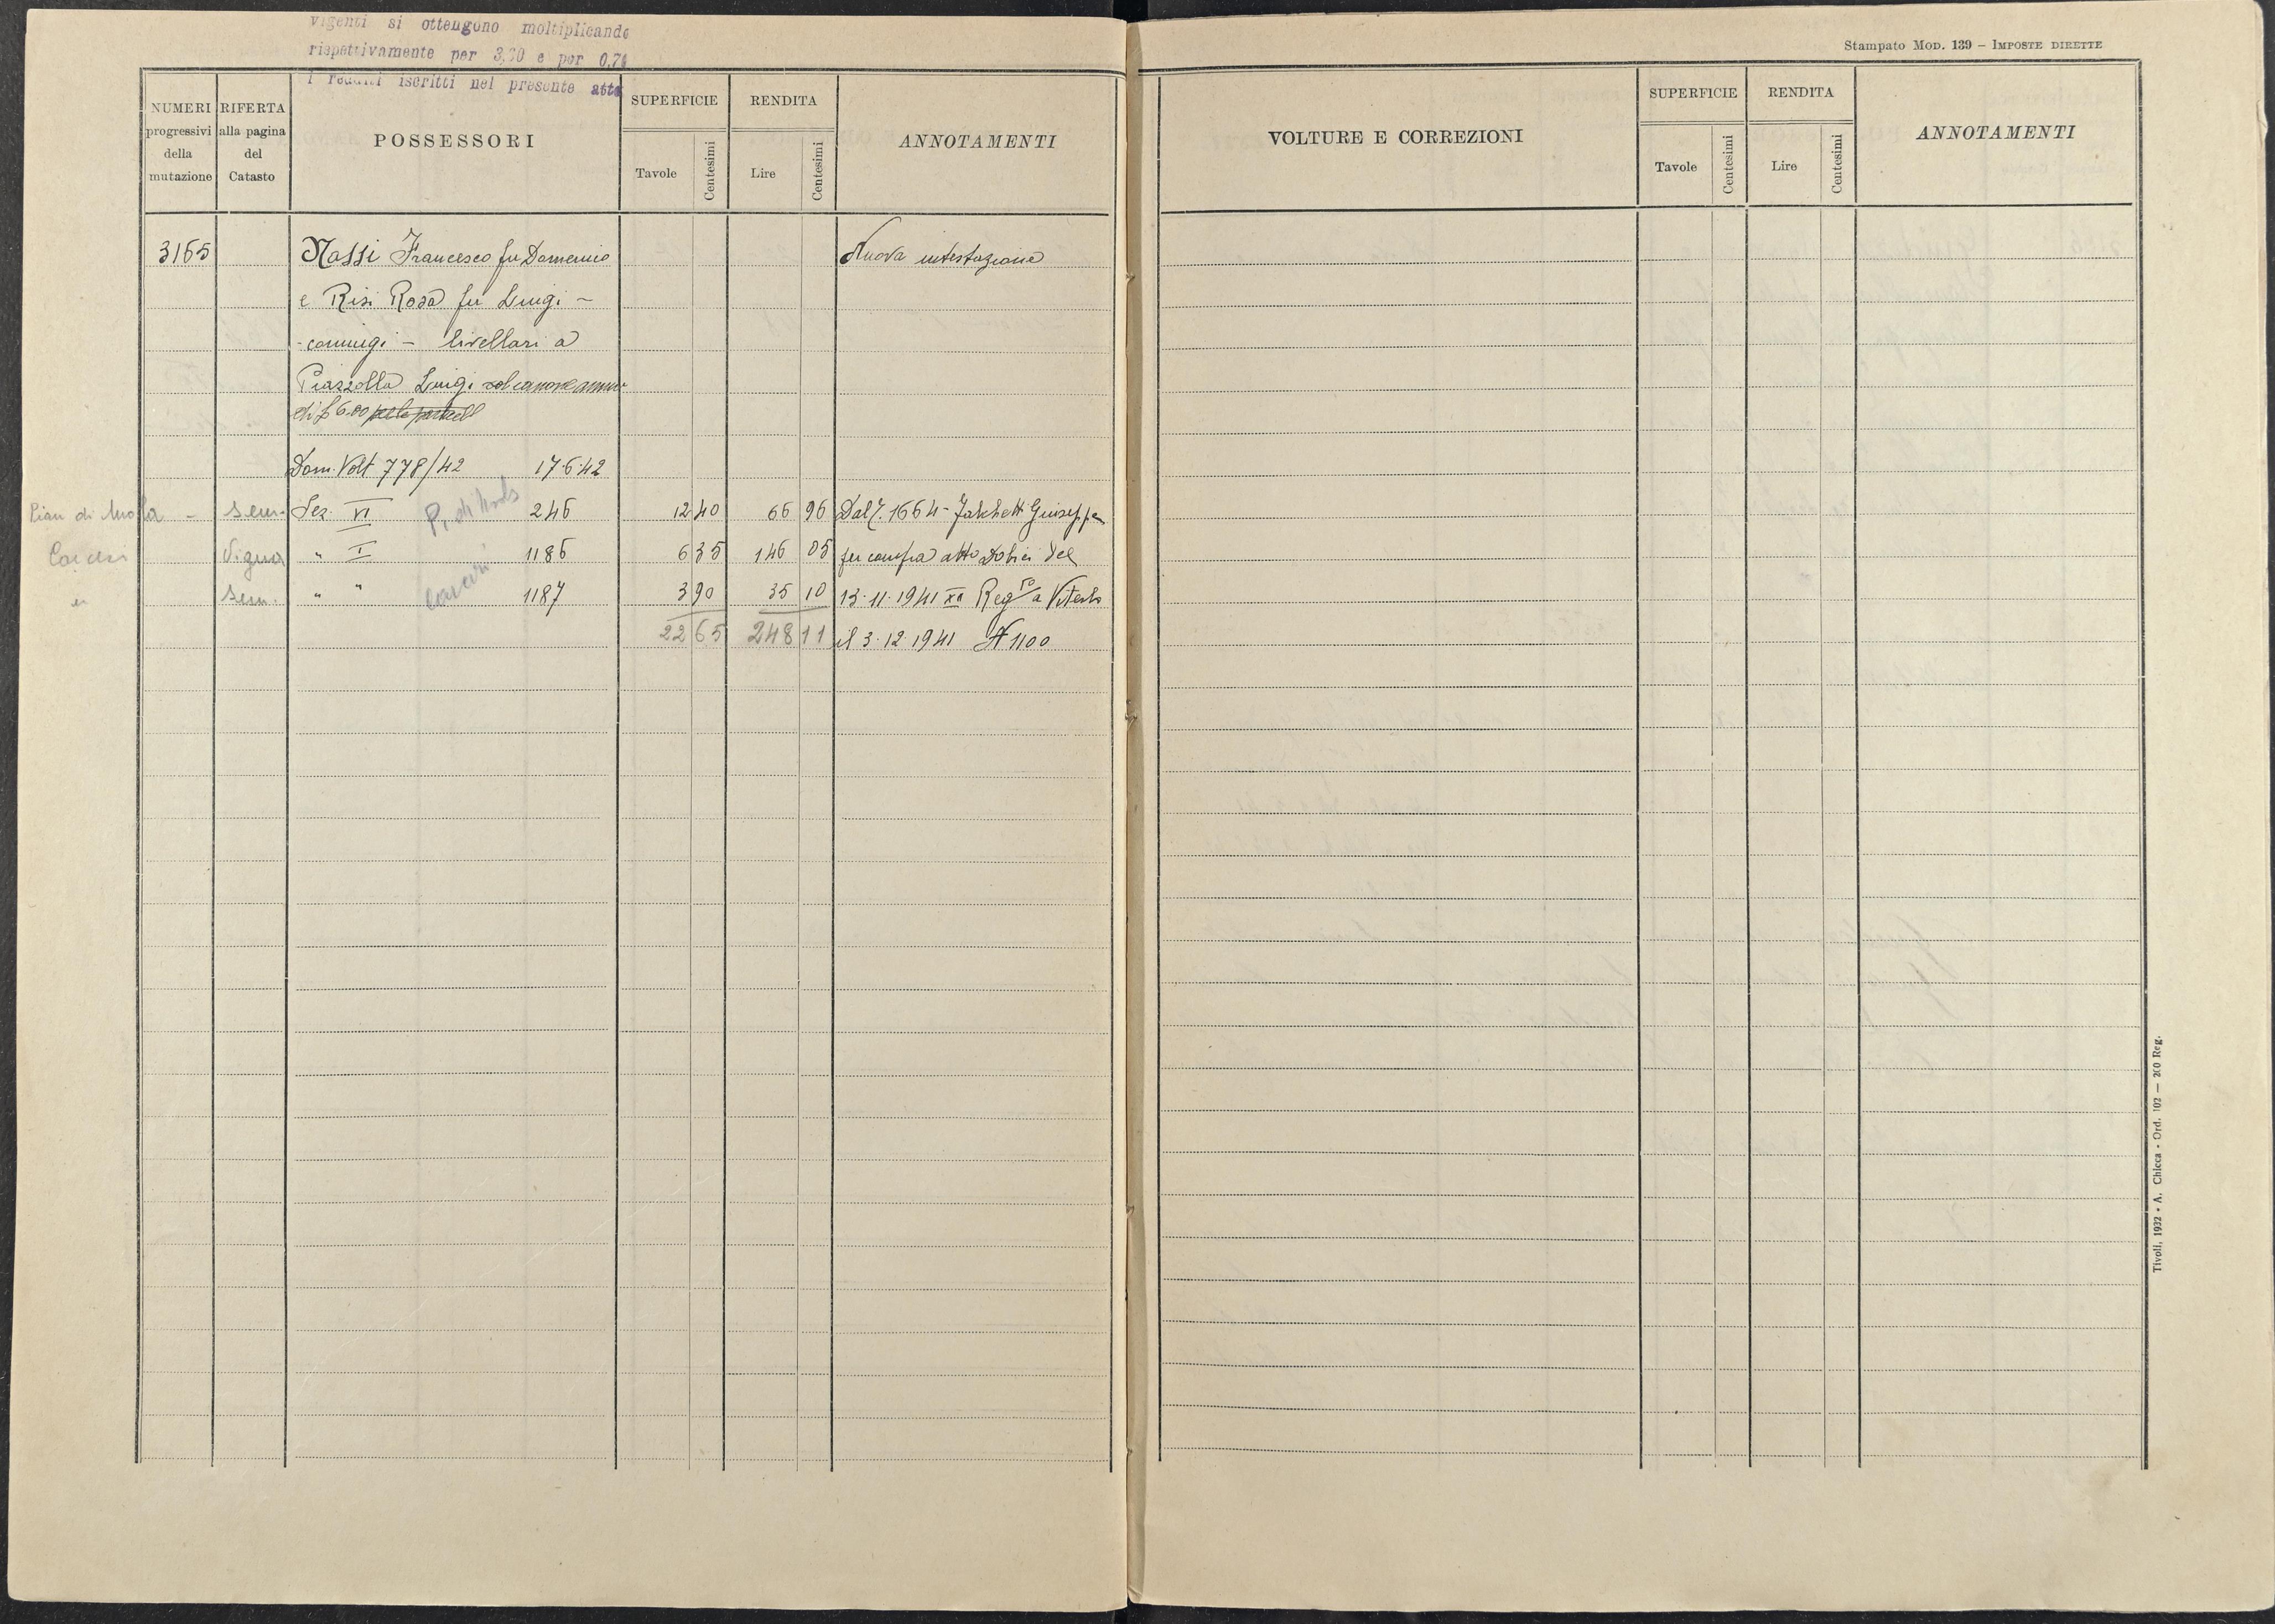 vigenti si ottengono moltiplicando
rispettivamente per 3,20 e per 0,70
i redditi iscritti nel presente atto
NUMERI progressivi della mutazione
RIFERTA alla pagina del Catasto
POSSESSORI
SUPERFICIE
Tavole Centesimi
RENDITA
Lire Centesimi
ANNOTAMENTI
3165 Nassi Francesco fu Domenico Nuova intestazione
e Risi Rosa fu Luigi -
- coniugi - livellari a
Piazzolla Luigi col canone annuo
di £ 6.00
Dom. Volt 778/42 17.6.42
Pian di Mola - Sem. Sez. VI P. di Mola 246 12 40 66 96 Dal 7. 1664 - Giuseppe
Carcari Vigna " I 1186 6 35 146 05 per compra atto del
Sem. " " 1187 3 90 35 10 13.11.1941 XX Reg.to a Viterbo
22 65 248 11 il 3.12.1941 N 1100
Stampato MOD. 139 – IMPOSTE DIRETTE
VOLTURE E CORREZIONI
SUPERFICIE
Tavole Centesimi
RENDITA
Lire Centesimi
ANNOTAMENTI
Tivoli, 1932 • A. Chicca • Ord. 102 — 200 Reg.